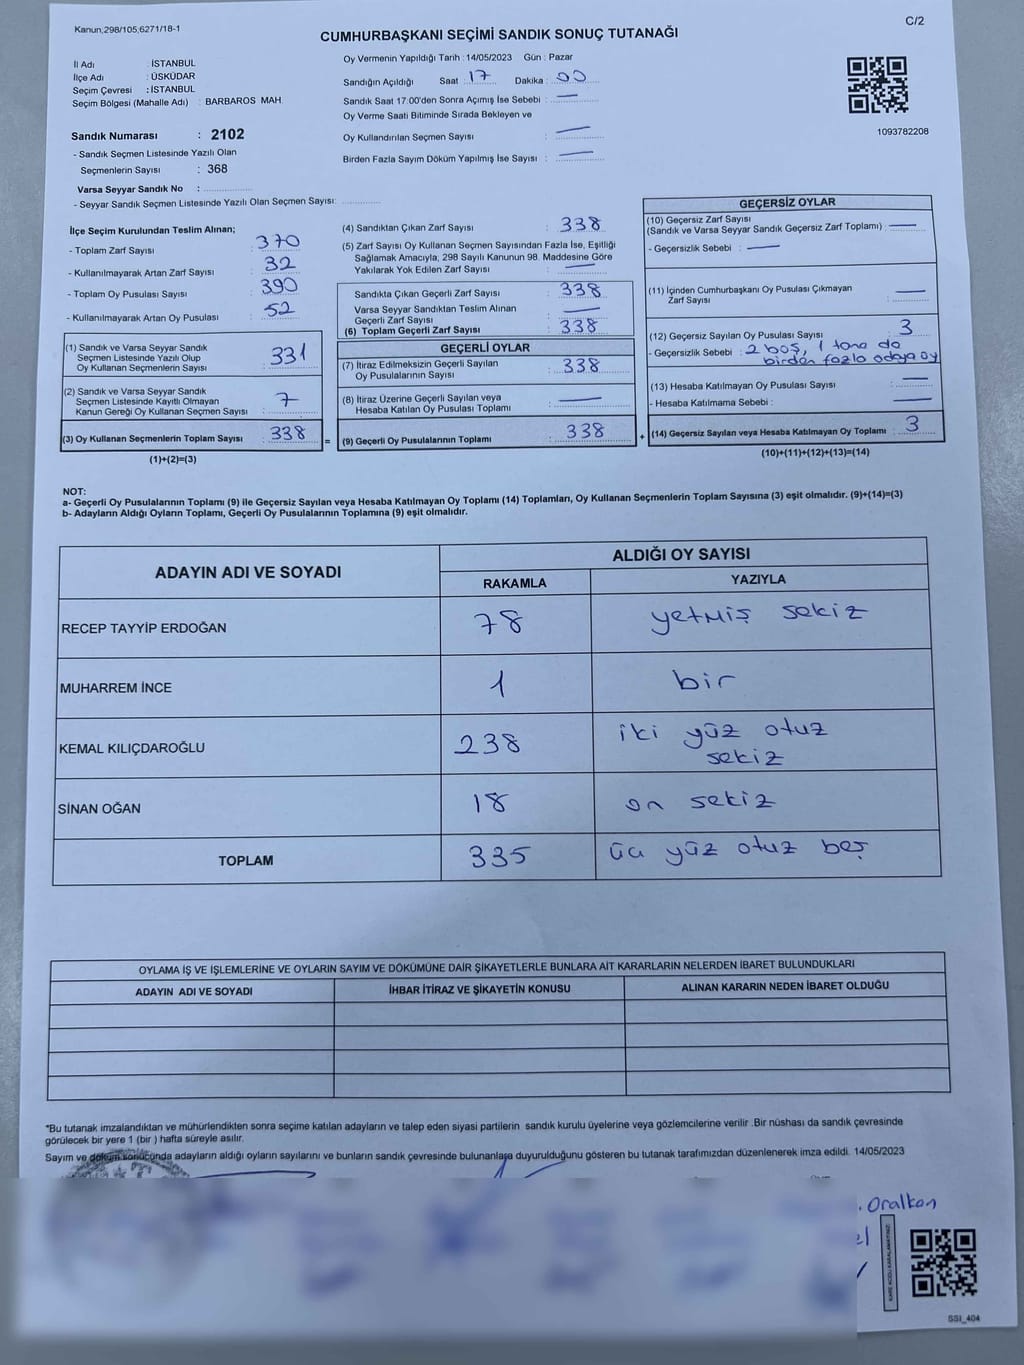 Kanun;298/105;6271/18-1
C/2
CUMHURBAŞKANI SEÇİMİ SANDIK SONUÇ TUTANAĞI
İl Adı : İSTANBUL
İlçe Adı : ÜSKÜDAR
Seçim Çevresi : İSTANBUL
Seçim Bölgesi (Mahalle Adı) : BARBAROS MAH.
Oy Vermenin Yapıldığı Tarih : 14/05/2023 Gün : Pazar
Sandığın Açıldığı Saat : 17 Dakika : 00
Sandık Saat 17.00'den Sonra Açımış İse Sebebi : —
Oy Verme Saati Bitiminde Sırada Bekleyen ve
Oy Kullandırılan Seçmen Sayısı : —
Birden Fazla Sayım Döküm Yapılmış İse Sayısı : —
1093782208
Sandık Numarası : 2102
- Sandık Seçmen Listesinde Yazılı Olan
Seçmenlerin Sayısı : 368
Varsa Seyyar Sandık No :
- Seyyar Sandık Seçmen Listesinde Yazılı Olan Seçmen Sayısı:
İlçe Seçim Kurulundan Teslim Alınan;
- Toplam Zarf Sayısı : 370
- Kullanılmayarak Artan Zarf Sayısı : 32
- Toplam Oy Pusulası Sayısı : 390
- Kullanılmayarak Artan Oy Pusulası : 52
(1) Sandık ve Varsa Seyyar Sandık
Seçmen Listesinde Yazılı Olup
Oy Kullanan Seçmenlerin Sayısı : 331
(2) Sandık ve Varsa Seyyar Sandık
Seçmen Listesinde Kayıtlı Olmayan
Kanun Gereği Oy Kullanan Seçmen Sayısı : 7
(3) Oy Kullanan Seçmenlerin Toplam Sayısı : 338
(1)+(2)=(3)
=
(4) Sandıktan Çıkan Zarf Sayısı : 338
(5) Zarf Sayısı Oy Kullanan Seçmen Sayısından Fazla İse, Eşitliği
Sağlamak Amacıyla, 298 Sayılı Kanunun 98. Maddesine Göre
Yakılarak Yok Edilen Zarf Sayısı : —
Sandıkta Çıkan Geçerli Zarf Sayısı : 338
Varsa Seyyar Sandıktan Teslim Alınan
Geçerli Zarf Sayısı : —
(6) Toplam Geçerli Zarf Sayısı : 338
GEÇERLİ OYLAR
(7) İtiraz Edilmeksizin Geçerli Sayılan
Oy Pusulalarının Sayısı : 338
(8) İtiraz Üzerine Geçerli Sayılan veya
Hesaba Katılan Oy Pusulası Toplamı : —
(9) Geçerli Oy Pusulalarının Toplamı : 338
+
GEÇERSİZ OYLAR
(10) Geçersiz Zarf Sayısı
(Sandık ve Varsa Seyyar Sandık Geçersiz Zarf Toplamı) : —
- Geçersizlik Sebebi : —
(11) İçinden Cumhurbaşkanı Oy Pusulası Çıkmayan
Zarf Sayısı : —
(12) Geçersiz Sayılan Oy Pusulası Sayısı : 3
- Geçersizlik Sebebi : 2 boş, 1 tane de
birden fazla adaya oy
(13) Hesaba Katılmayan Oy Pusulası Sayısı : —
- Hesaba Katılmama Sebebi : —
(14) Geçersiz Sayılan veya Hesaba Katılmayan Oy Toplamı : 3
(10)+(11)+(12)+(13)=(14)
NOT:
a- Geçerli Oy Pusulalarının Toplamı (9) ile Geçersiz Sayılan veya Hesaba Katılmayan Oy Toplamı (14) Toplamları, Oy Kullanan Seçmenlerin Toplam Sayısına (3) eşit olmalıdır. (9)+(14)=(3)
b- Adayların Aldığı Oyların Toplamı, Geçerli Oy Pusulalarının Toplamına (9) eşit olmalıdır.
ADAYIN ADI VE SOYADI
ALDIĞI OY SAYISI
RAKAMLA YAZIYLA
RECEP TAYYİP ERDOĞAN 78 yetmiş sekiz
MUHARREM İNCE 1 bir
KEMAL KILIÇDAROĞLU 238 iki yüz otuz
sekiz
SİNAN OĞAN 18 on sekiz
TOPLAM 335 üç yüz otuz beş
OYLAMA İŞ VE İŞLEMLERİNE VE OYLARIN SAYIM VE DÖKÜMÜNE DAİR ŞİKAYETLERLE BUNLARA AİT KARARLARIN NELERDEN İBARET BULUNDUKLARI
ADAYIN ADI VE SOYADI İHBAR İTİRAZ VE ŞİKAYETİN KONUSU ALINAN KARARIN NEDEN İBARET OLDUĞU
*Bu tutanak imzalandıktan ve mühürlendikten sonra seçime katılan adayların ve talep eden siyasi partilerin sandık kurulu üyelerine veya gözlemcilerine verilir .Bir nüshası da sandık çevresinde
görülecek bir yere 1 (bir ) hafta süreyle asılır.
Sayım ve döküm sonucunda adayların aldığı oyların sayılarını ve bunların sandık çevresinde bulunanlara duyurulduğunu gösteren bu tutanak tarafımızdan düzenlenerek imza edildi. 14/05/2023
Oralkan
SSI_404